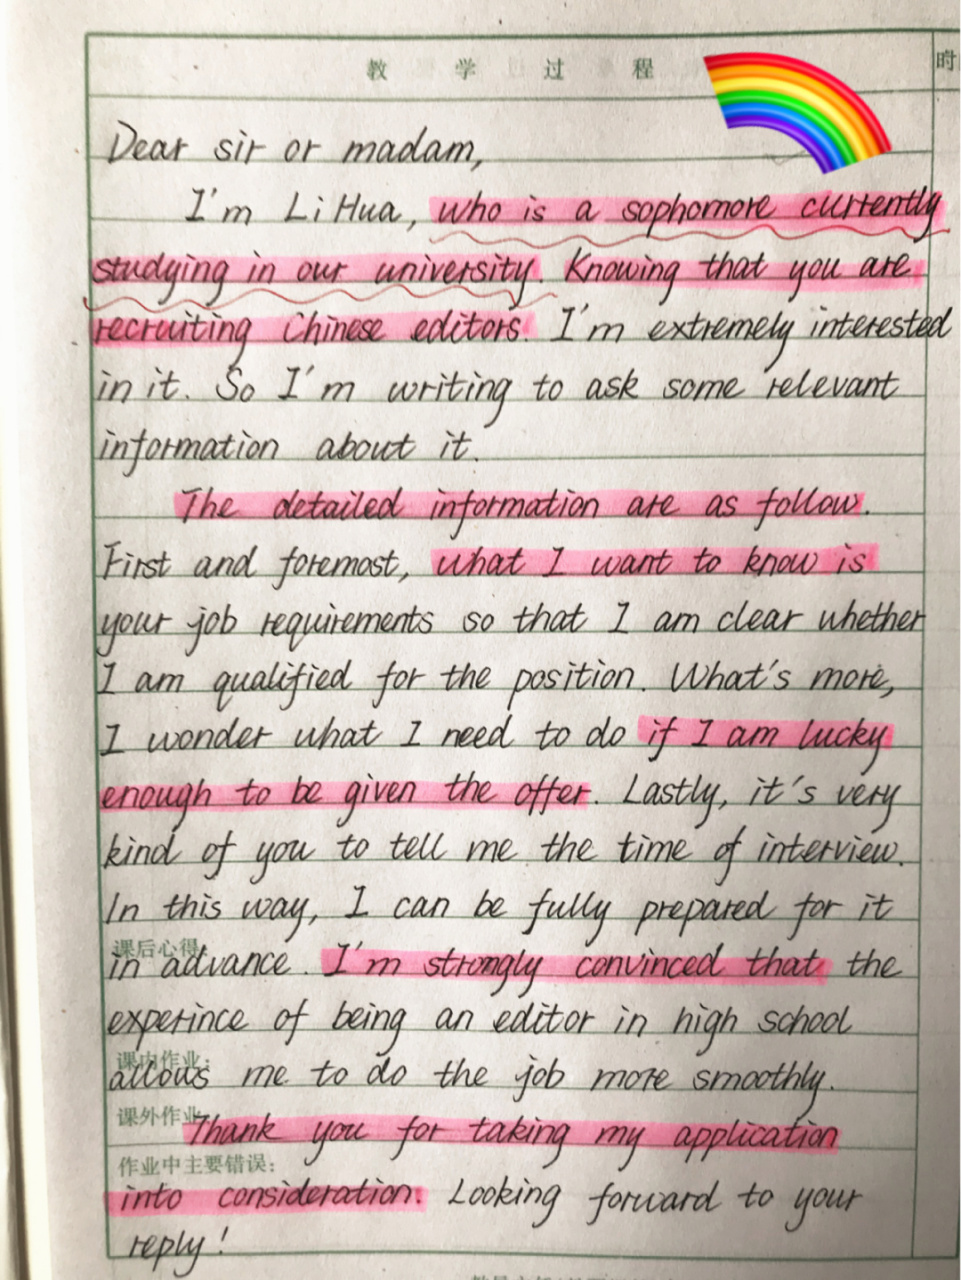 教 学 过 程
时
Dear sir or madam,
I'm Li Hua, who is a sophomore currently
studying in our university. Knowing that you are
recruiting Chinese editors. I'm extremely interested
in it. So I'm writing to ask some relevant
information about it.
The detailed information are as follow.
First and foremost, what I want to know is
your job requirements so that I am clear whether
I am qualified for the position. What's more,
I wonder what I need to do if I am lucky
enough to be given the offer. Lastly, it's very
kind of you to tell me the time of interview.
In this way, I can be fully prepared for it
课后心得:
in advance. I'm strongly convinced that the
experince of being an editor in high school
课内作业:
allows me to do the job more smoothly.
课外作业
Thank you for taking my application
作业中主要错误:
into consideration. Looking forward to your
reply!